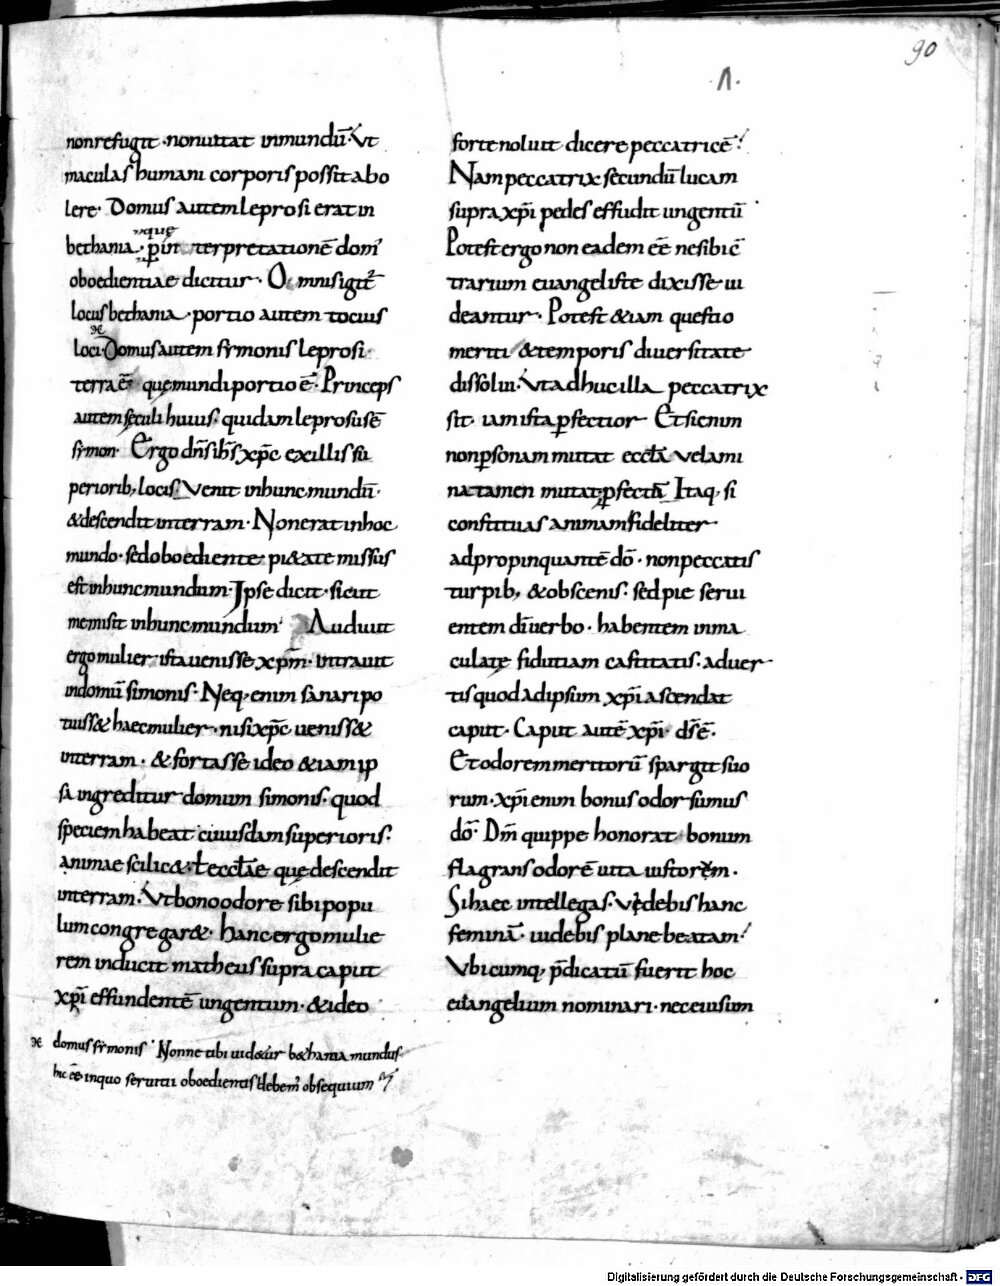 90
·Λ·
non refugit · non uitat inmundū · Ut
maculas humani corporis possit abo
lere · Domus autem leprosi erat in
quę
bethania · p̱ int terpretationē dom'
oboedientiae dicitur · Omnis igit̄
locus bethania · portio autem tocius
loci · Domus autem symonis leprosi ·
terra ē quę mundi portio ē · Princeps
autem sęculi huius · quidam leprosus ē
symon · Ergo dn̄s ih̄s xp̄c ex illis su
periorib; locis · Uenit in hunc mundū ·
& descendit in terram · Non erat in hoc
mundo · sed oboediente pi&ate missus
est in hunc mundum · Ipse dicit · sicut
me misit in hunc mundum · Audiuit
ergo mulier ista uenisse xp̄m · intrauit
in domū simonis · Neq; enim sanari po
tuiss& haec mulier · nisi xp̄c ueniss&
in terram · & fortasse ideo &iam ip
sa ingreditur domum simonis · quod
speciem habeat cuiusdam superioris ·
animae scilic& · ł ecclæ que descendit
in terram · Ut bono odore sibi popu
lum congregar& · hanc ergo mulie
rem inducit matheus supra caput
xp̄i effundentē ungentum · & ideo
domus symonis · Nonne tibi uid&ur b&hania mundus ·
hic ēē in quo seruitii oboedientis debem' obsequium
forte noluit dicere peccatricē ·
Nam peccatrix secundū lucam
supra xp̄i pedes effudit ungentū ·
Potest ergo non eadem ēē ne sibi c̄
trarium euangeliste dixisse ui
deantur · Potest &iam questio
meriti & temporis diuersitate
dissolui · Ut adhuc illa peccatrix
sit · iam ista p̱fectior · Etsi enim
non p̱sonam mutat eccła uel ami
na tamen mutat p̱fectā · Itaq; si
constituas animam fideliter
adpropinquantē dō · non peccatis
turpib; & obscenis · sed pie serui
entem dī uerbo · habentem inma
culatę fidutiam castitatis · aduer
tis quod ad ipsum xp̄i ascendat
caput · Caput autē xp̄i · ds̄ ē ·
Et odorem meritorū spargit suo
rum · xp̄i enim bonus odor sumus
dō · Dm̄ quippe honorat bonum
flagrans odorē uita iustorum ·
Si haec intellegas · uidebis hanc
feminā · uidebis plane beatam ·
Ubicumq; p̄dicatū fuerit hoc
euangelium nominari · nec eiusum
Digitalisierung gefördert durch die Deutsche Forschungsgemeinschaft - DFG